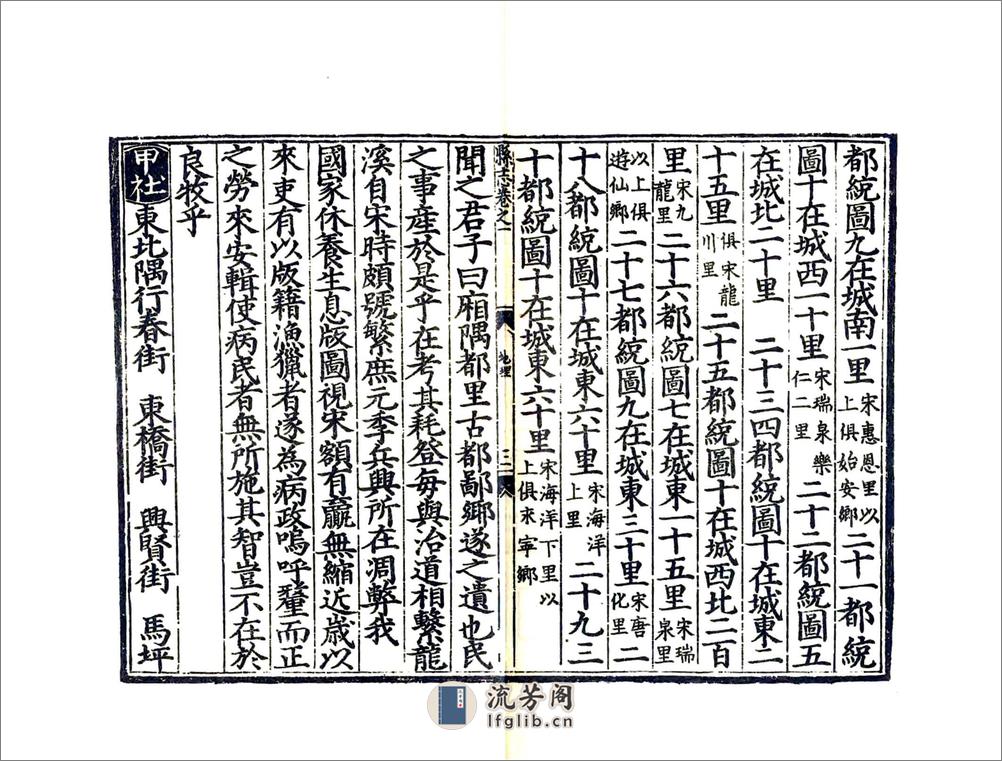 都統圖九在城南一里宋惠恩里以上俱始安鄉二十一都統
圖十在城西一十里宋瑞泉樂仁二里二十二都統圖五
在城北二十里　二十三四都統圖十在城東二
十五里俱宋龍川里二十五都統圖十在城西北二百
里宋九龍里二十六都統圖七在城東一十五里宋瑞泉里
以上俱遊仙鄉二十七都統圖九在城東三十里宋唐化里二
十八都統圖十在城東六十里宋海洋上里二十九三
十都統圖十在城東六十里宋海洋下里以上俱永寧鄉
縣志卷之一
地理
三
聞之君子曰廂隅都里古都鄙鄉遂之遺也民
之事產於是乎在考其耗登每與治道相繫龍
溪自宋時頗號繁庶元季兵興所在凋弊我
國家休養生息版圖視宋額有贏無縮近歲以
來吏有以版籍漁獵者遂為病政嗚呼釐而正
之勞來安輯使病民者無所施其智豈不在於
良牧乎
甲社東北隅行春街　東橋街　興賢街　馬坪
流芳阁
lfglib.cn